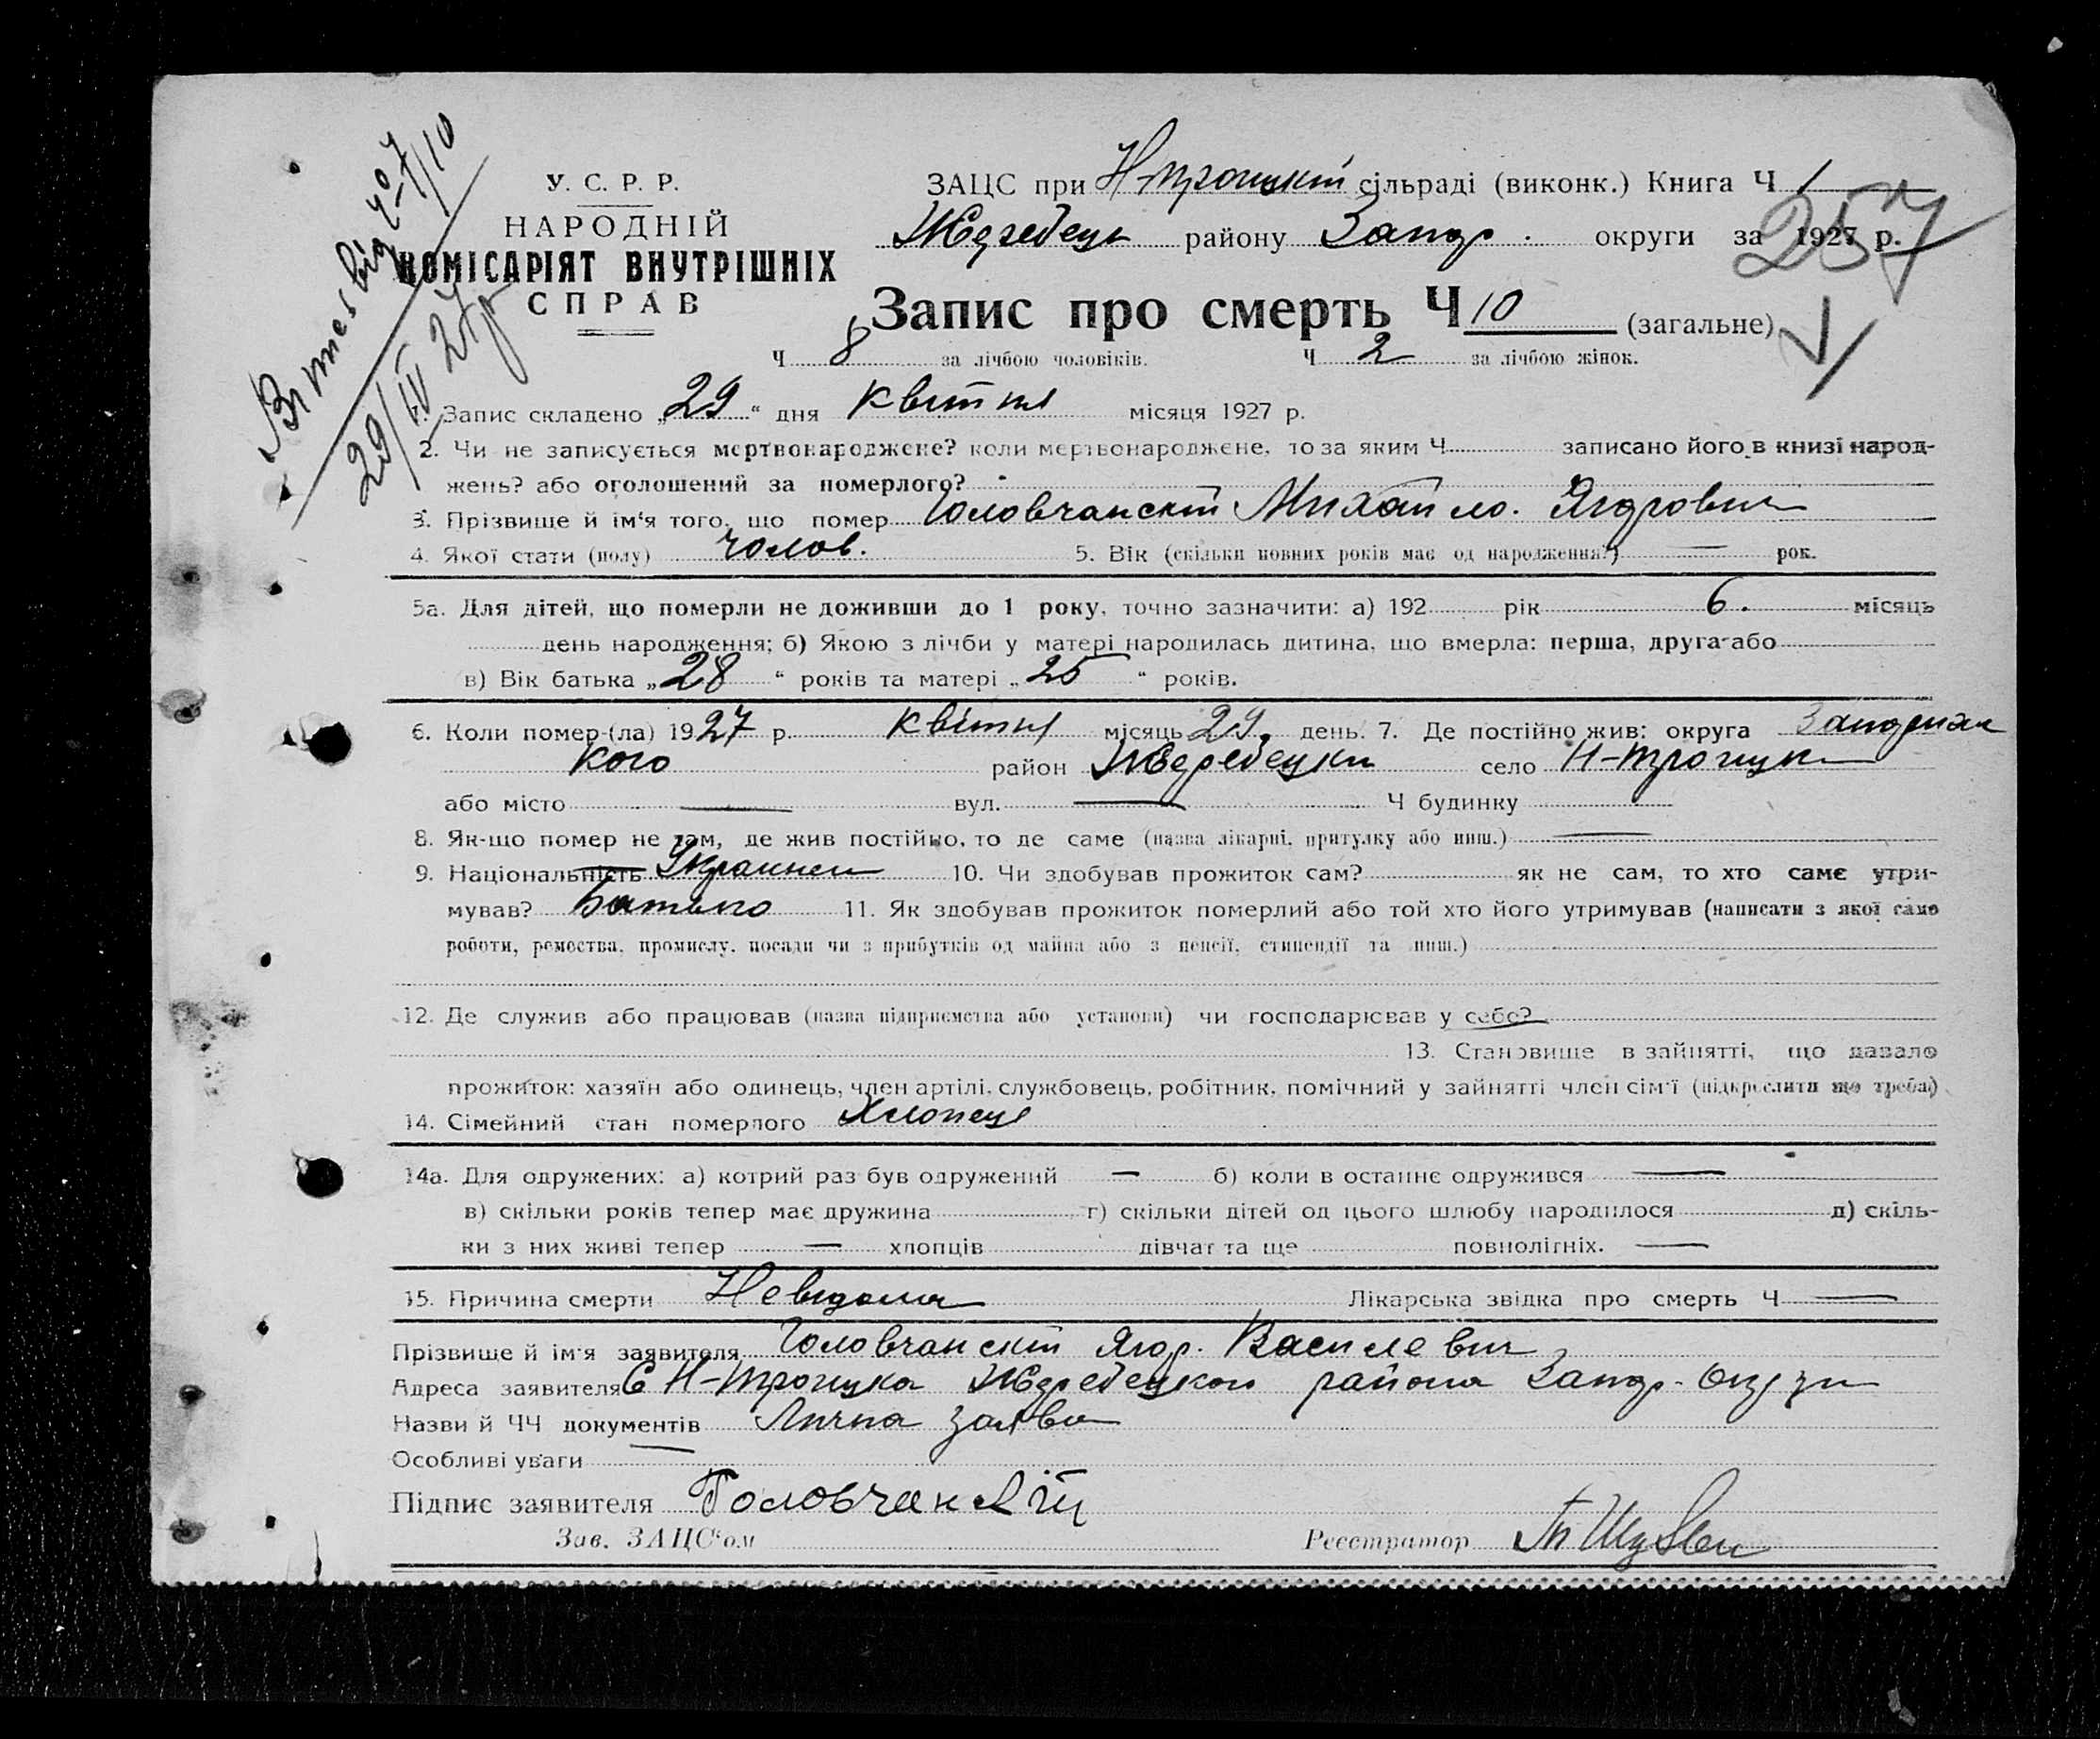 У. С. Р. Р.
НАРОДНІЙ
КОМІСАРІЯТ ВНУТРІШНІХ
СПРАВ
29/IV 27 р
ЗАЦС при Н-Троицкій сільраді (виконк.) Книга Ч 1
Жеребець району Запор. округи за 1927 р.
257
Запис про смерть Ч 10 (загальне)
Ч 8 за лічбою чоловіків. Ч 2 за лічбою жінок.
1. Запис складено „29“ дня квітня місяця 1927 р.
2. Чи не записується мертвонароджене? коли мертвонароджене, то за яким Ч записано його в книзі народ-
жень? або оголошений за померлого?
3. Прізвище й ім'я того, що помер Головчанскій Михайло. Ягорович
4. Якої стати (полу) чолов. 5. Вік (скільки повних років має од народження?) — рок.
5а. Для дітей, що померли не доживши до 1 року, точно зазначити: а) 192 рік 6. місяць
день народження; б) Якою з лічби у матері народилась дитина, що вмерла: перша, друга або
в) Вік батька „28“ років та матері „25“ років.
6. Коли помер (ла) 1927 р. квітня місяць 29. день. 7. Де постійно жив: округа Запорижс
кого район Жеребецки село Н-Троицк
або місто — вул. — Ч будинку
8. Як-що помер не там, де жив постійно, то де саме (назва лікарні, притулку або инш.) —
9. Національність Украинец 10. Чи здобував прожиток сам? як не сам, то хто саме утри-
мував? Батько 11. Як здобував прожиток померлий або той хто його утримував (написати з якої само
роботи, ремества, промислу, посади чи з прибутків од майна або з пенсії, стипендії та инш.)
12. Де служив або працював (назва підприємства або установи) чи господарював у себе?
13. Становище в зайнятті, що давало
прожиток: хазяїн або одинець, член артілі, службовець, робітник, помічний у зайнятті член сім'ї (підкреслити що треба)
14. Сімейний стан померлого Хлопець
14а. Для одружених: а) котрий раз був одружений — б) коли в останнє одружився —
в) скільки років тепер має дружина г) скільки дітей од цього шлюбу народилося д) скіль-
ки з них живі тепер — хлопців дівчат та ще повнолітніх. —
15. Причина смерти Невідома Лікарська звідка про смерть Ч —
Прізвище й ім'я заявителя Головчанскій Ягор. Василевич
Адреса заявителя С Н-Троицка Жеребецкого района Запор. округи
Назви й ЧЧ документів Лична заява
Особливі уваги —
Підпис заявителя Головчанскій
Зав. ЗАЦС'ом Реєстратор